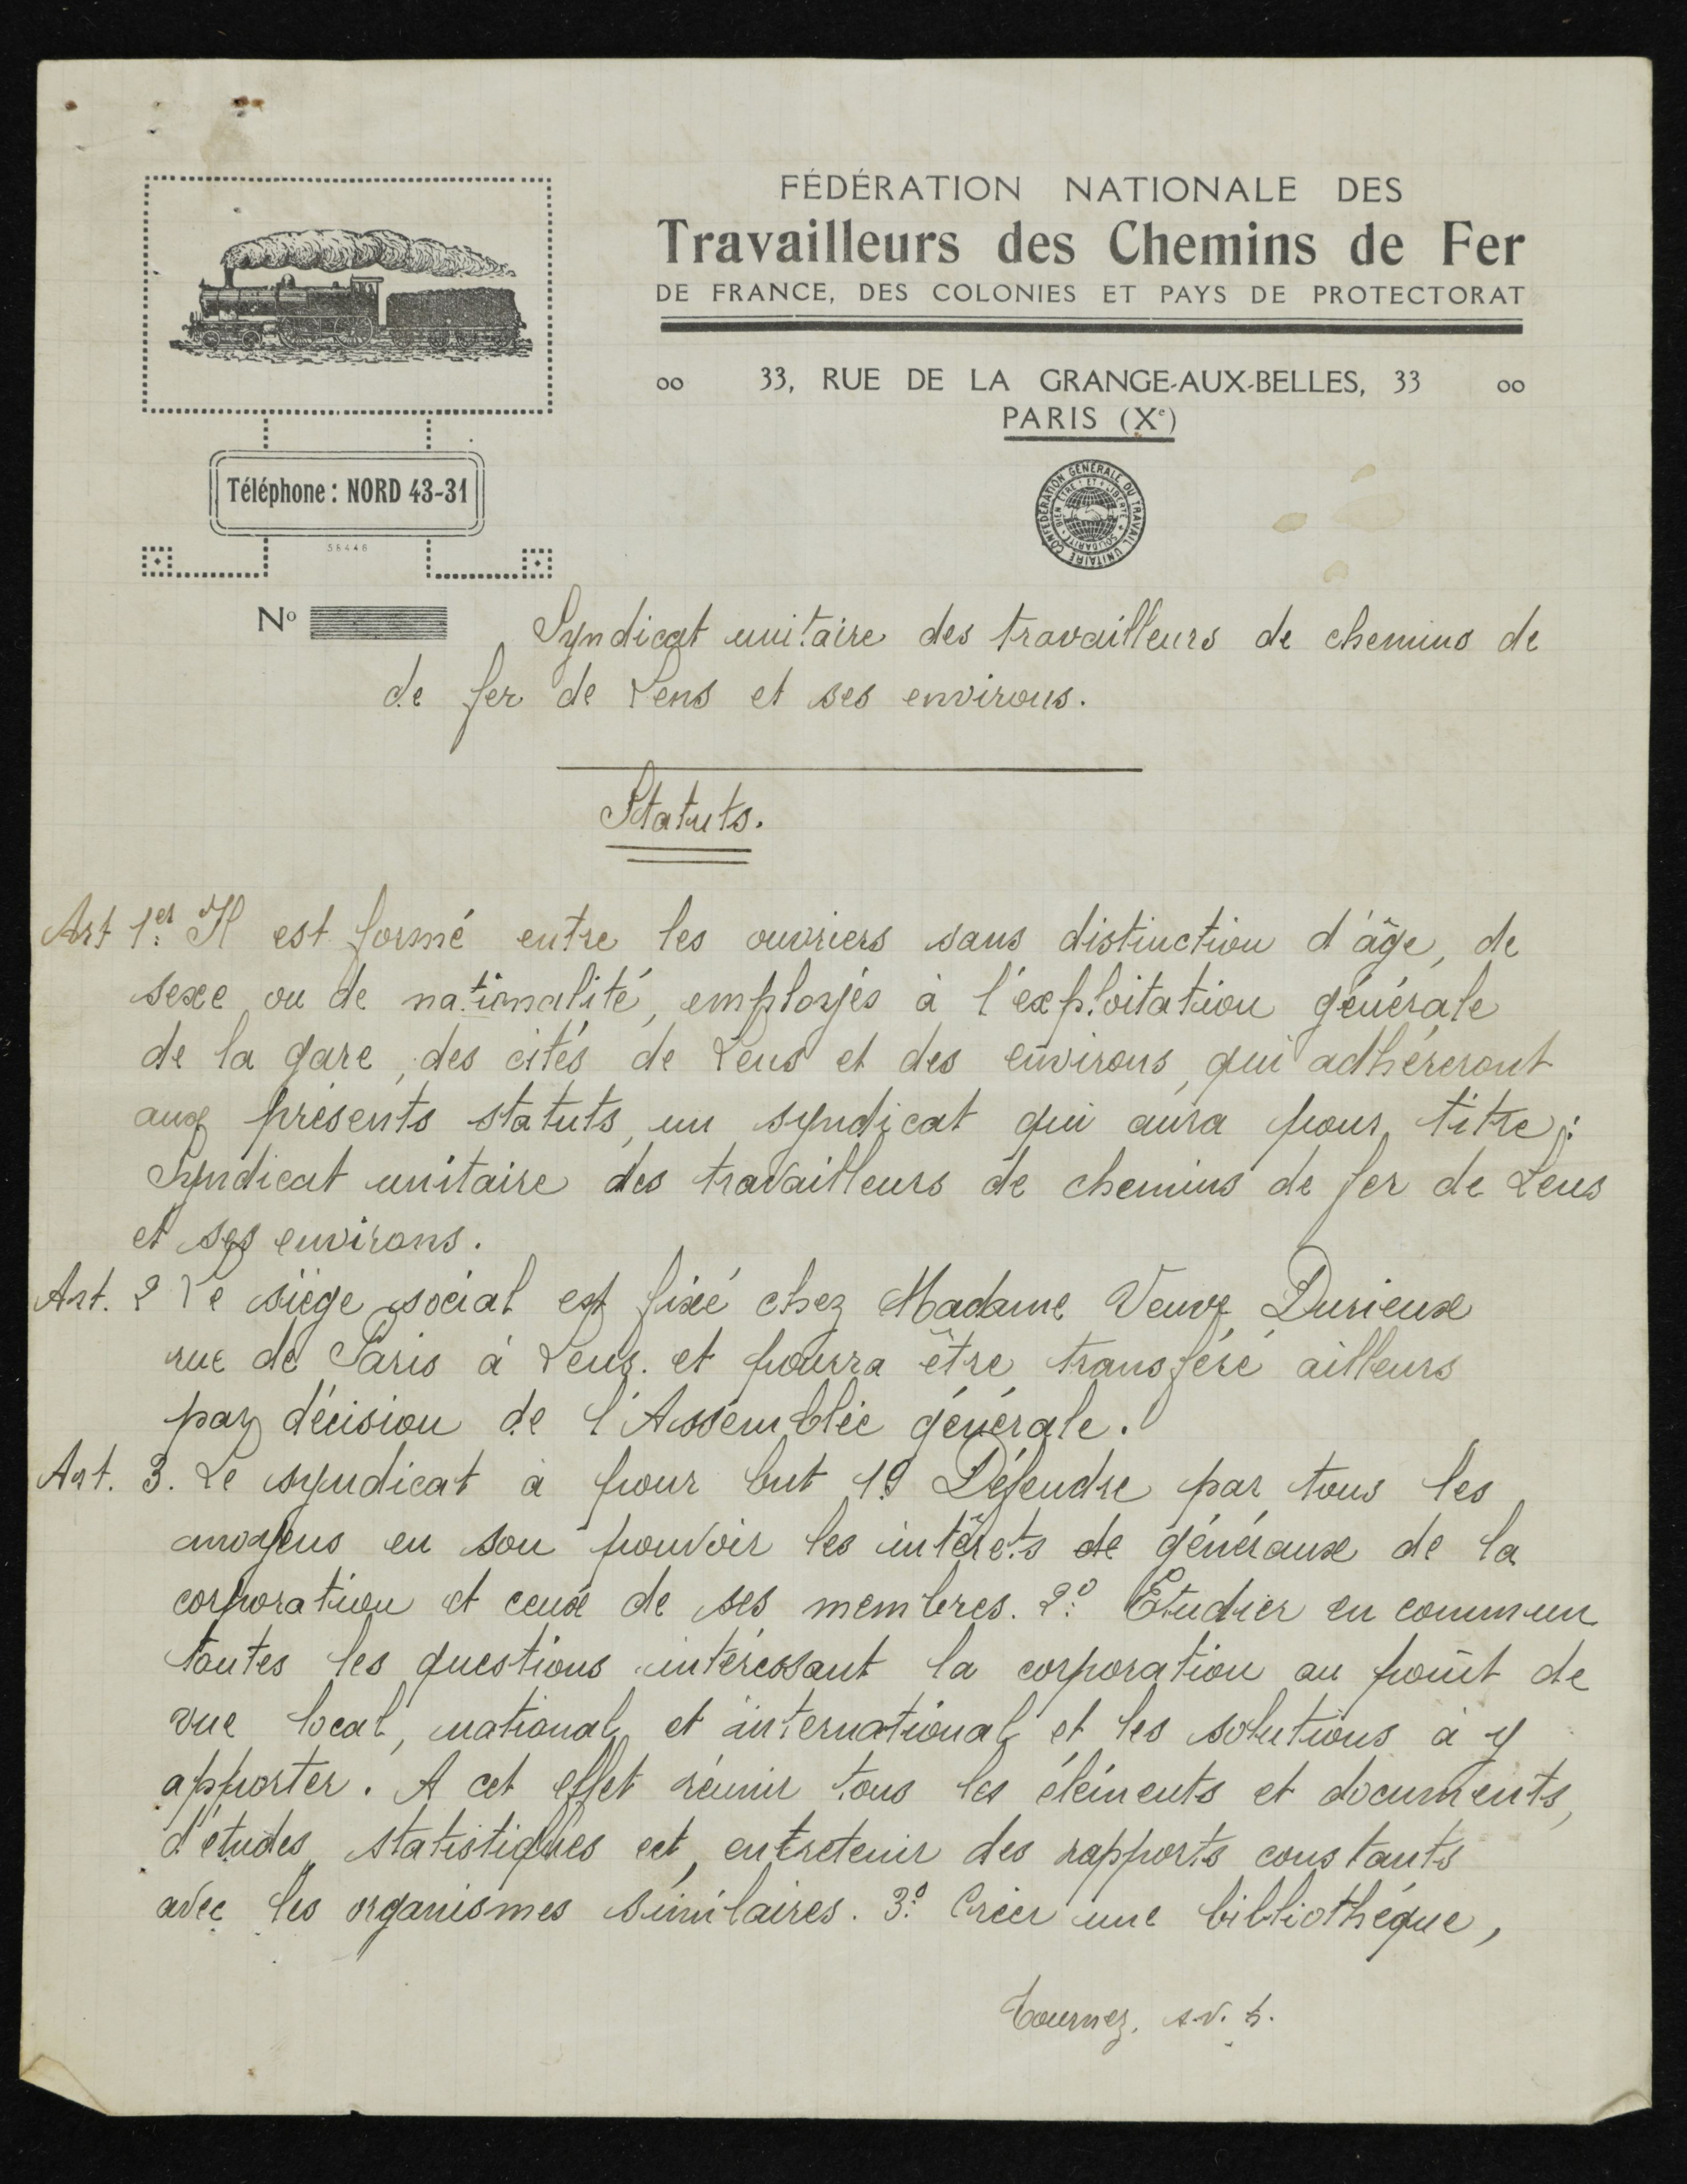 FÉDÉRATION NATIONALE DES
Travailleurs des Chemins de Fer
DE FRANCE, DES COLONIES ET PAYS DE PROTECTORAT
oo 33, RUE DE LA GRANGE-AUX-BELLES, 33 oo
PARIS (Xe)
Téléphone : NORD 43-31
58446
CONFÉDÉRATION GÉNÉRALE DU TRAVAIL UNITAIRE
BIEN ÊTRE ET LIBERTÉ SOLIDARITÉ
No
Syndicat unitaire des travailleurs de chemins de
de fer de Lens et ses environs.
Statuts.
Art 1er. Il est formé entre les ouvriers sans distinction d'âge, de
sexe ou de nationalité, employés à l'exploitation générale
de la gare, des cités de Lens et des environs, qui adhéreront
aux présents statuts, un syndicat qui aura pour titre :
Syndicat unitaire des travailleurs de chemins de fer de Lens
et ses environs.
Art. 2 Le siège social est fixé chez Madame Veuve Durieux
rue de Paris à Lens. et pourra être transféré ailleurs
par décision de l'Assemblée générale.
Art. 3. Le syndicat à pour but 1o Défendre par tous les
moyens en son pouvoir les intérêts de généraux de la
corporation et ceux de ses membres. 2o Etudier en commun
toutes les questions intéressant la corporation au point de
vue local, national et international et les solutions à y
apporter. A cet effet réunir tous les éléments et documents,
d'études statistiques ect, entretenir des rapports constants
avec les organismes similaires. 3o Créer une bibliothéque,
Tournez. s.v. p.